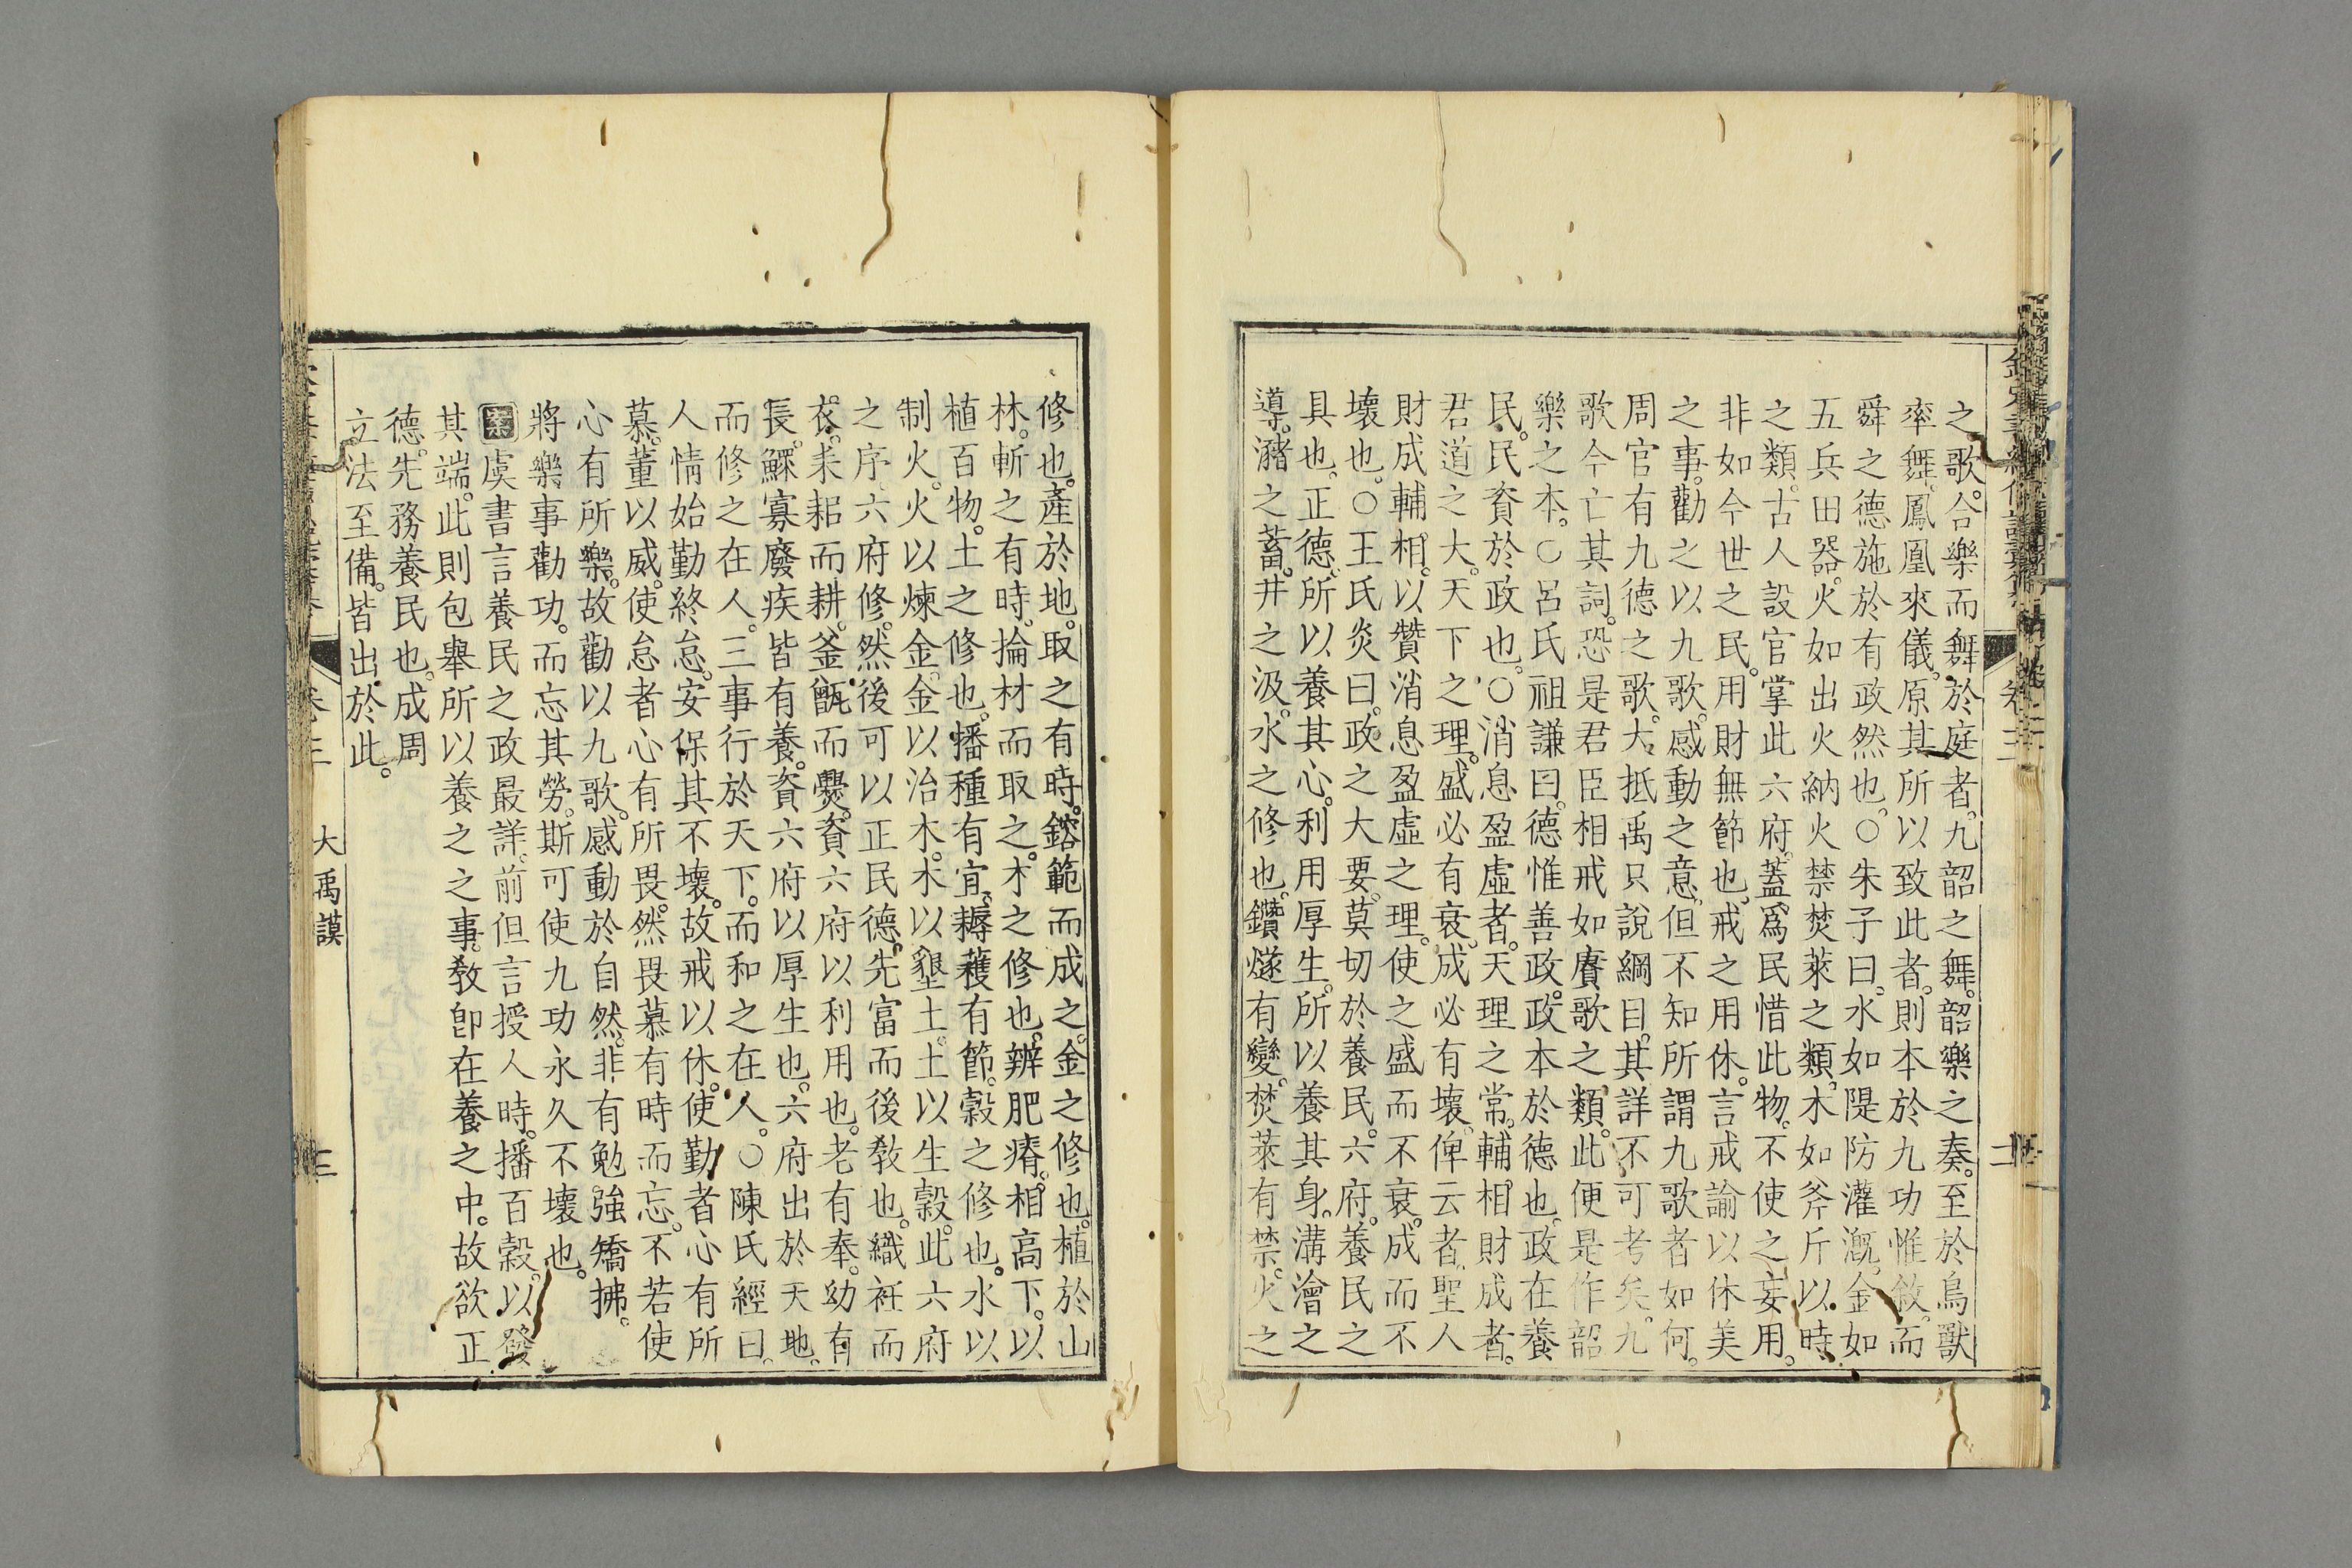 之歌。合樂而舞於庭者。九韶之舞。韶樂之奏。至於鳥獸
率舞。鳳凰來儀。原其所以致此者。則本於九功惟敘。而
舜之德施於有政然也。○朱子曰。水如隄防灌漑。金如
五兵田器。火如出火納火禁焚萊之類。木如斧斤以時
之類。古人設官掌此六府。蓋爲民惜此物。不使之妄用。
非如今世之民。用財無節也。戒之用休。言戒諭以休美
之事。勸之以九歌。感動之意。但不知所謂九歌者如何。
周官有九德之歌。大抵禹只說綱目。其詳不可考矣。九
歌今亡其詞。恐是君臣相戒如賡歌之類。此便是作韶
樂之本。○呂氏祖謙曰。德惟善政。政本於德也。政在養
民。民資於政也。○消息盈虛者。天理之常。輔相財成者。
君道之大。天下之理。盛必有衰。成必有壞。俾云者。聖人
財成輔相。以贊消息盈虛之理。使之盛而不衰。成而不
壞也。○王氏炎曰。政之大要。莫切於養民。六府。養民之
具也。正德。所以養其心。利用厚生。所以養其身。溝澮之
導。瀦之蓄。井之汲。水之修也。鑽燧有變。焚萊有禁。火之
欽定書經傳說彙纂 卷三 二
修也。產於地。取之有時。鎔範而成之。金之修也。植於山
林。斬之有時。掄材而取之。木之修也。辨肥瘠。相高下。以
植百物。土之修也。播種有宜。耨穫有節。穀之修也。水以
制火。火以煉金。金以治木。木以墾土。土以生穀。此六府
之序。六府修。然後可以正民德。先富而後敎也。織衽而
衣。耒耜而耕。釜甑而爨。資六府以利用也。老有奉。幼有
長。鰥寡廢疾皆有養。資六府以厚生也。六府出於天地。
而修之在人。三事行於天下。而和之在人。○陳氏經曰。
人情始勤終怠。安保其不壞。故戒以休。使勤者心有所
慕。董以威。使怠者心有所畏。然畏慕有時而忘。不若使
心有所樂。故勸以九歌。感動於自然。非有勉強矯拂。
將樂事勸功。而忘其勞。斯可使九功永久不壞也。
案虞書言養民之政最詳。前但言授人時。播百穀。以發
其端。此則包舉所以養之之事。敎卽在養之中。故欲正
德。先務養民也。成周
立法至備。皆出於此。
卷三 大禹謨 三